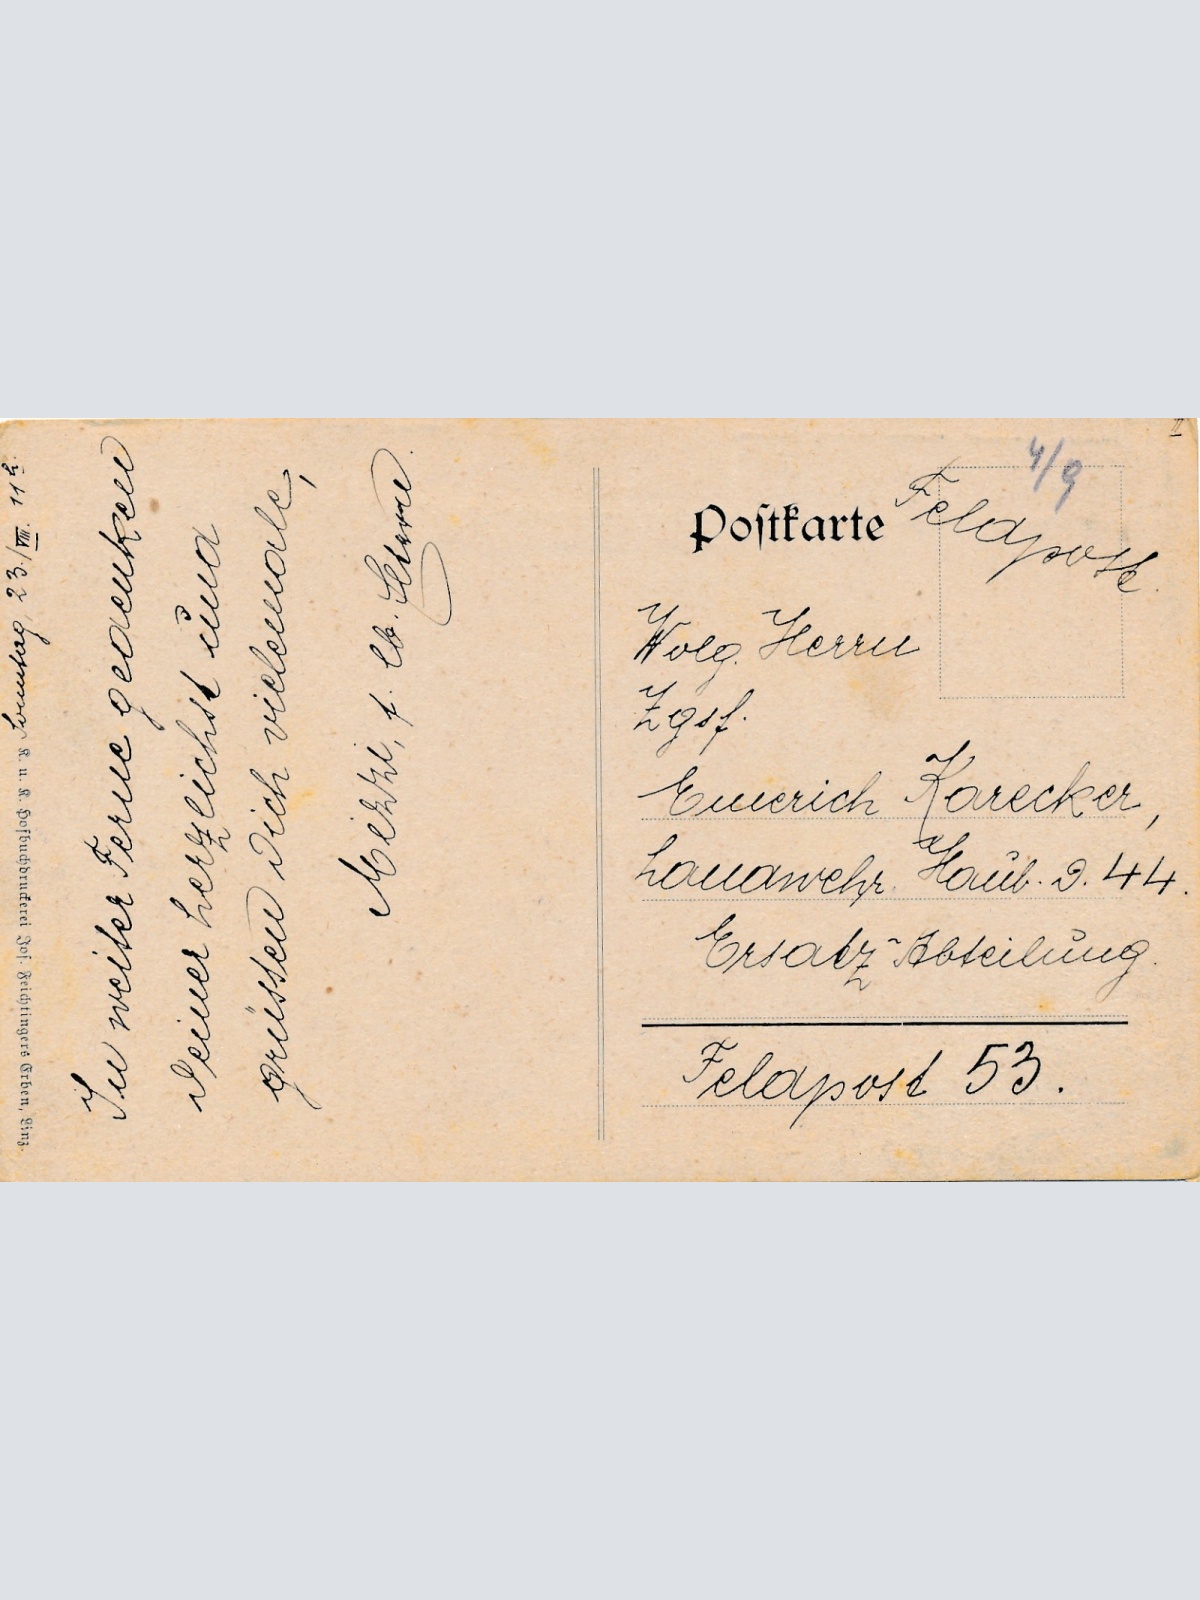 Sonntag 23./VIII. 11h.
In weiter Ferne gedenken
Deiner herzlichst und
grüssen Dich vielemale,
Mitzi, f. lb.
K. u. K. Hofbuchdruckerei Jos. Feichtingers Erben, Linz.
II
4/9
Postkarte
Feldpost.
Wolg. Herrn
Zgsf.
Emerich Karecker,
Landwehr. Haub. D. 44.
Ersatz-Abteilung.
Feldpost 53.